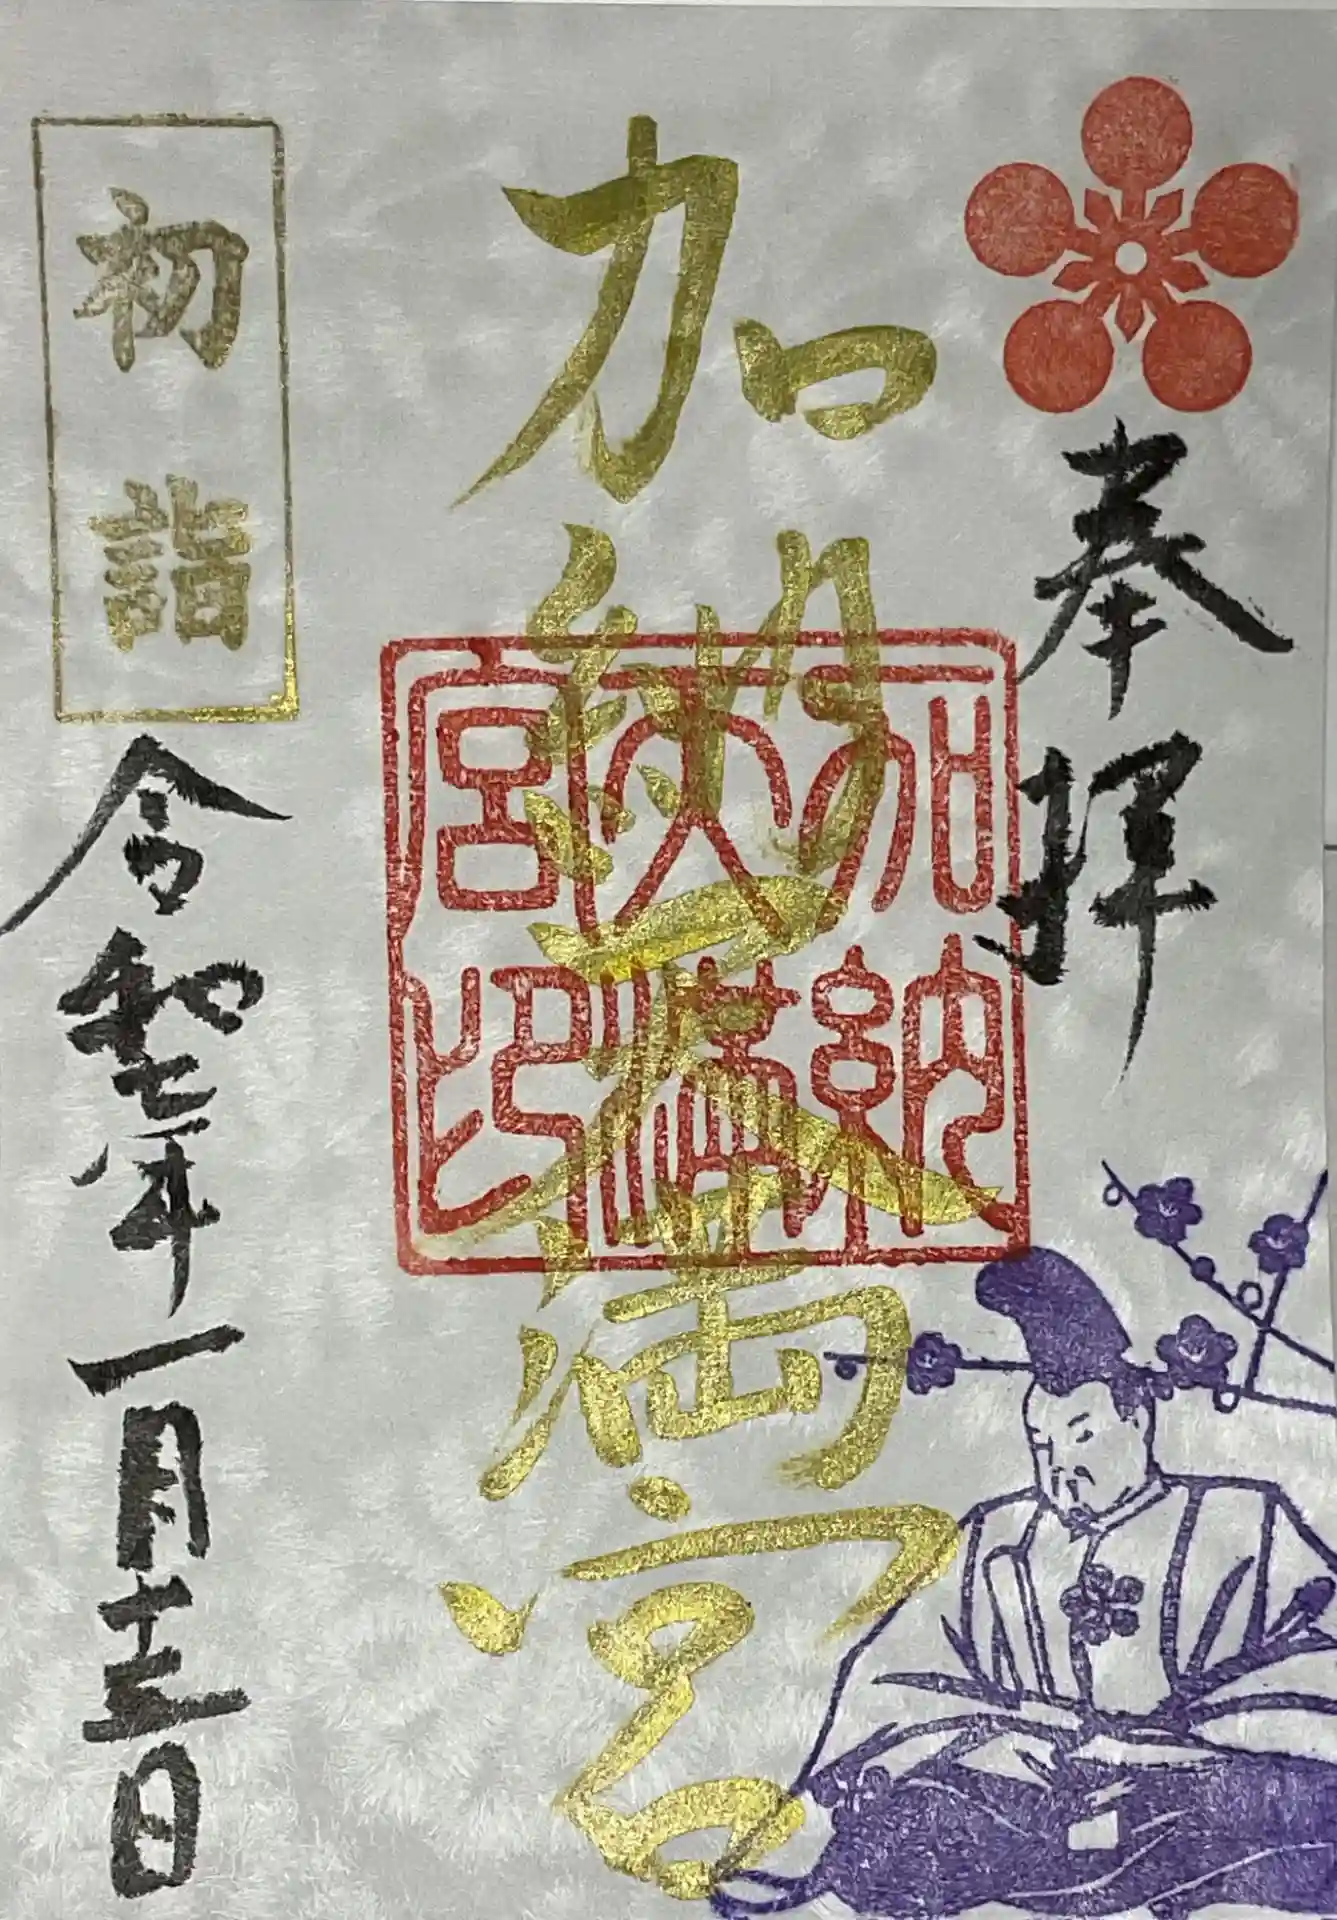 奉拝
加納天満宮
加納
天満
宮印
初詣
令和七年一月十三日